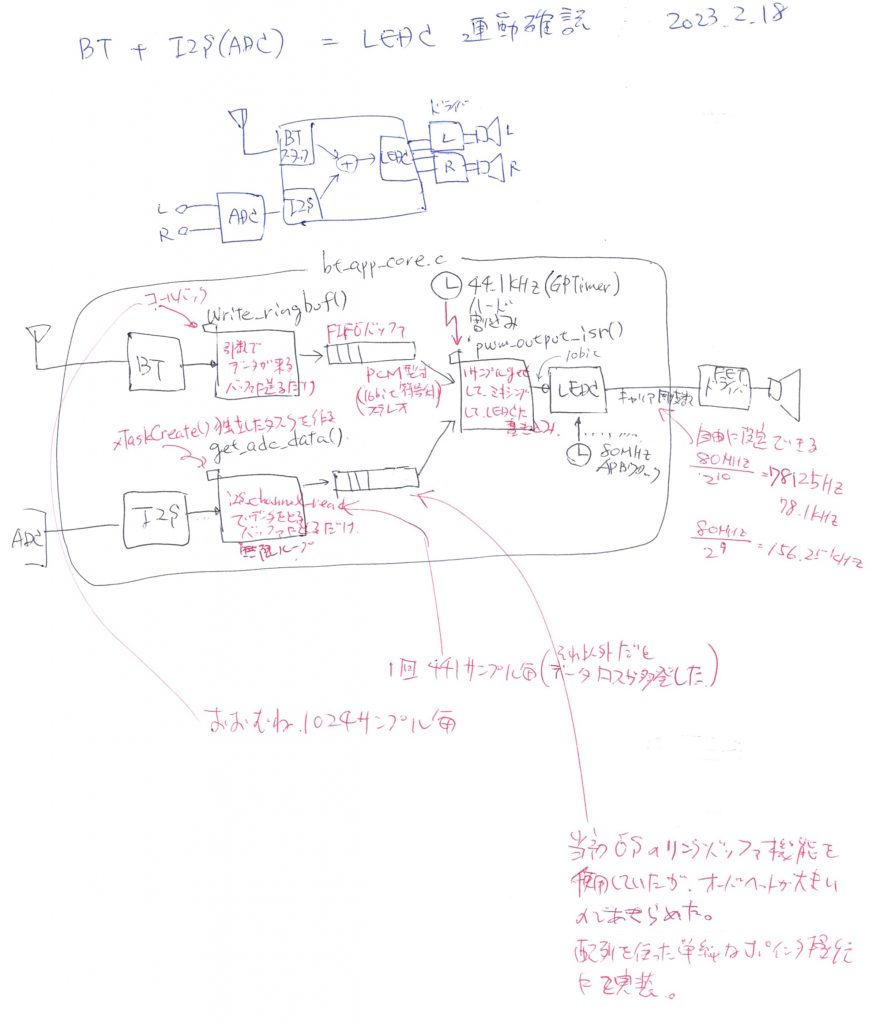 BT + I2S(ADC) = LEDC 連動確認 2023.2.18
ドライバ
BT
スタック
+
LEDC
L
L
R
R
I2S
ADC
L
R
bt_app_core.c
44.1KHz(GPTimer)
ハード
割込み
コールバック
write_ringbuf()
pwm_output_isr()
10bit
BT
引数で
データが来る
バッファに送るだけ
FIFOバッファ
PCM型付
(16bit 符号付)
ステレオ
1サンプルget
して、ミキシング
して、LEDCに
書き込み
LEDC
キャリア周波数
FET
ドライバ
80MHz
APBクロック
自由に設定できる
80MHz
2^10
=78125Hz
78.1kHz
80MHz
2^9
=156.25kHz
xTaskCreate()独立したタスクを作る
get_adc_data()
ADC
I2S
i2s_channel_read
でデータをとる
バッファにとるだけ
無限ループ
1回 441サンプル毎(それ以外だと
データロスが多発した)
おおむね、1024サンプル毎
当初OSのリングバッファ機能を
使用していたが、オーバヘットが大きい
のであきらめた。
配列を使った単純なポインタ
に実装。